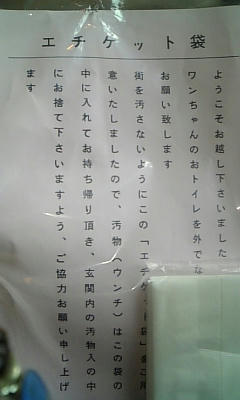 エチケット袋
ようこそお越し下さいました
ワンちゃんのおトイレを外でな
お願い致します
街を汚さないようにこの「エチケット袋」をご用
意いたしましたので、汚物(ウンチ)はこの袋の
中に入れてお持ち帰り頂き、玄関内の汚物入の中
にお捨て下さいますよう、ご協力お願い申し上げ
ます